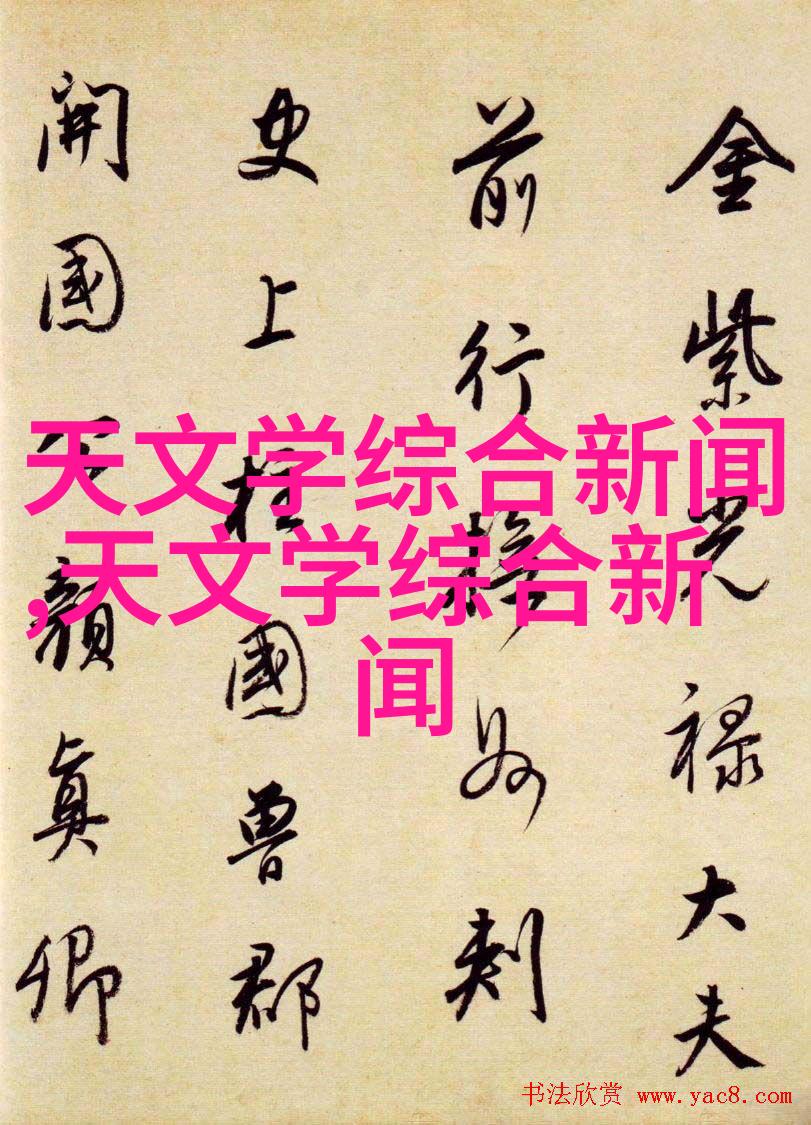 金紫光禄大夫
前行州刺
史上柱國魯郡
開國公顏真卿
天文学综合新闻
,天文学综合新
闻
书法欣赏 www.yac8.com